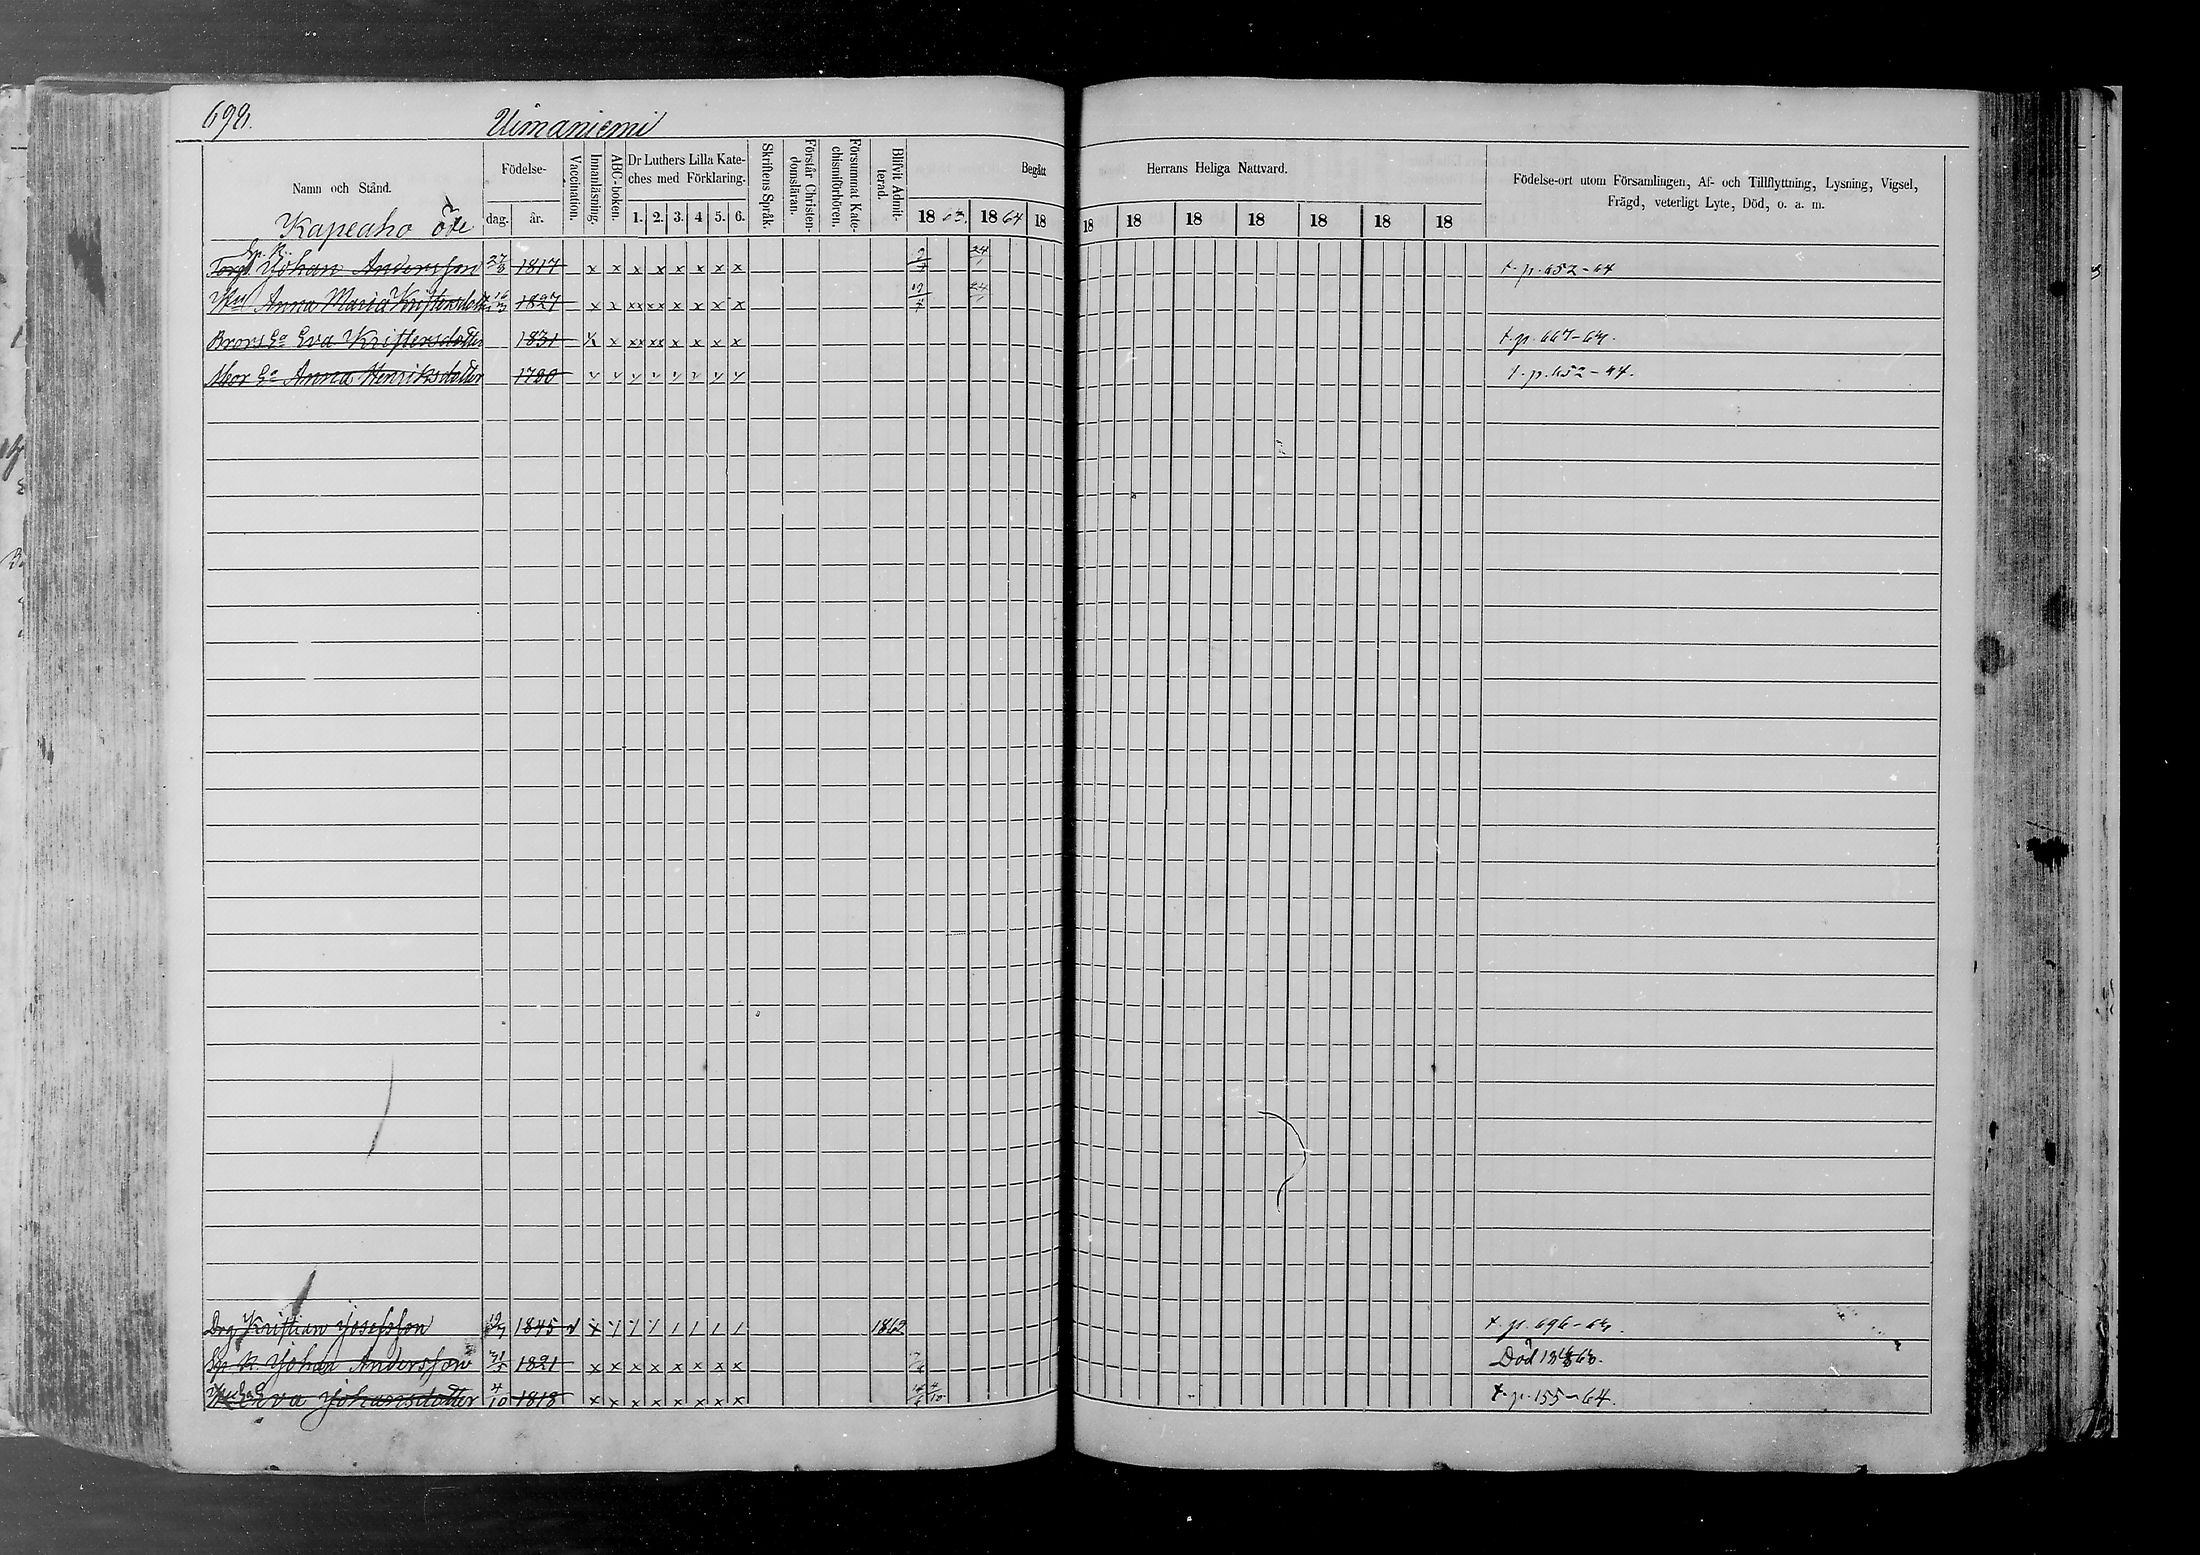 698.
Uimaniemi
Namn och Stånd.
Födelse-
dag. år.
Vaccination.
Innanläsning.
ABC-boken.
Dr Luthers Lilla Kate-
ches med Förklaring.
1. 2. 3. 4 5. 6.
Skriftens Språk.
Förstår Christen-
domsläran.
Försummat Kate-
chismiförhören.
Blifvit Admit-
terad.
Begått Herrans Heliga Nattvard.
18 63. 18 64 18 18 18 18 18 18 18 18
Födelse-ort utom Församlingen, Af- och Tillflyttning, Lysning, Vigsel,
Frägd, veterligt Lyte, Död, o. a. m.
Kapeaho öde
Sp. K.
Torp. Johan Andersson 27/3 1817 x x x x x x x x 24 t. p. 652-64
Hu Anna Maria Kristersdotter 1827 x x xx xx x x x x 24
Brors Ea Eva Kristersdotter 1831 x x xx xx x x x x t. p. 667-63.
Mor Ea Anna Henriksdotter 1780 t. p. 652-64.
Drg Kristian Josefsson 1845 v 1862 t. p. 696-63.
Sp. K. Johan Andersson 31/5 1821 x x x x x x x x Död
Eva Johansdotter 4/10 1818 x x x x x x x x t. p. 155-64.